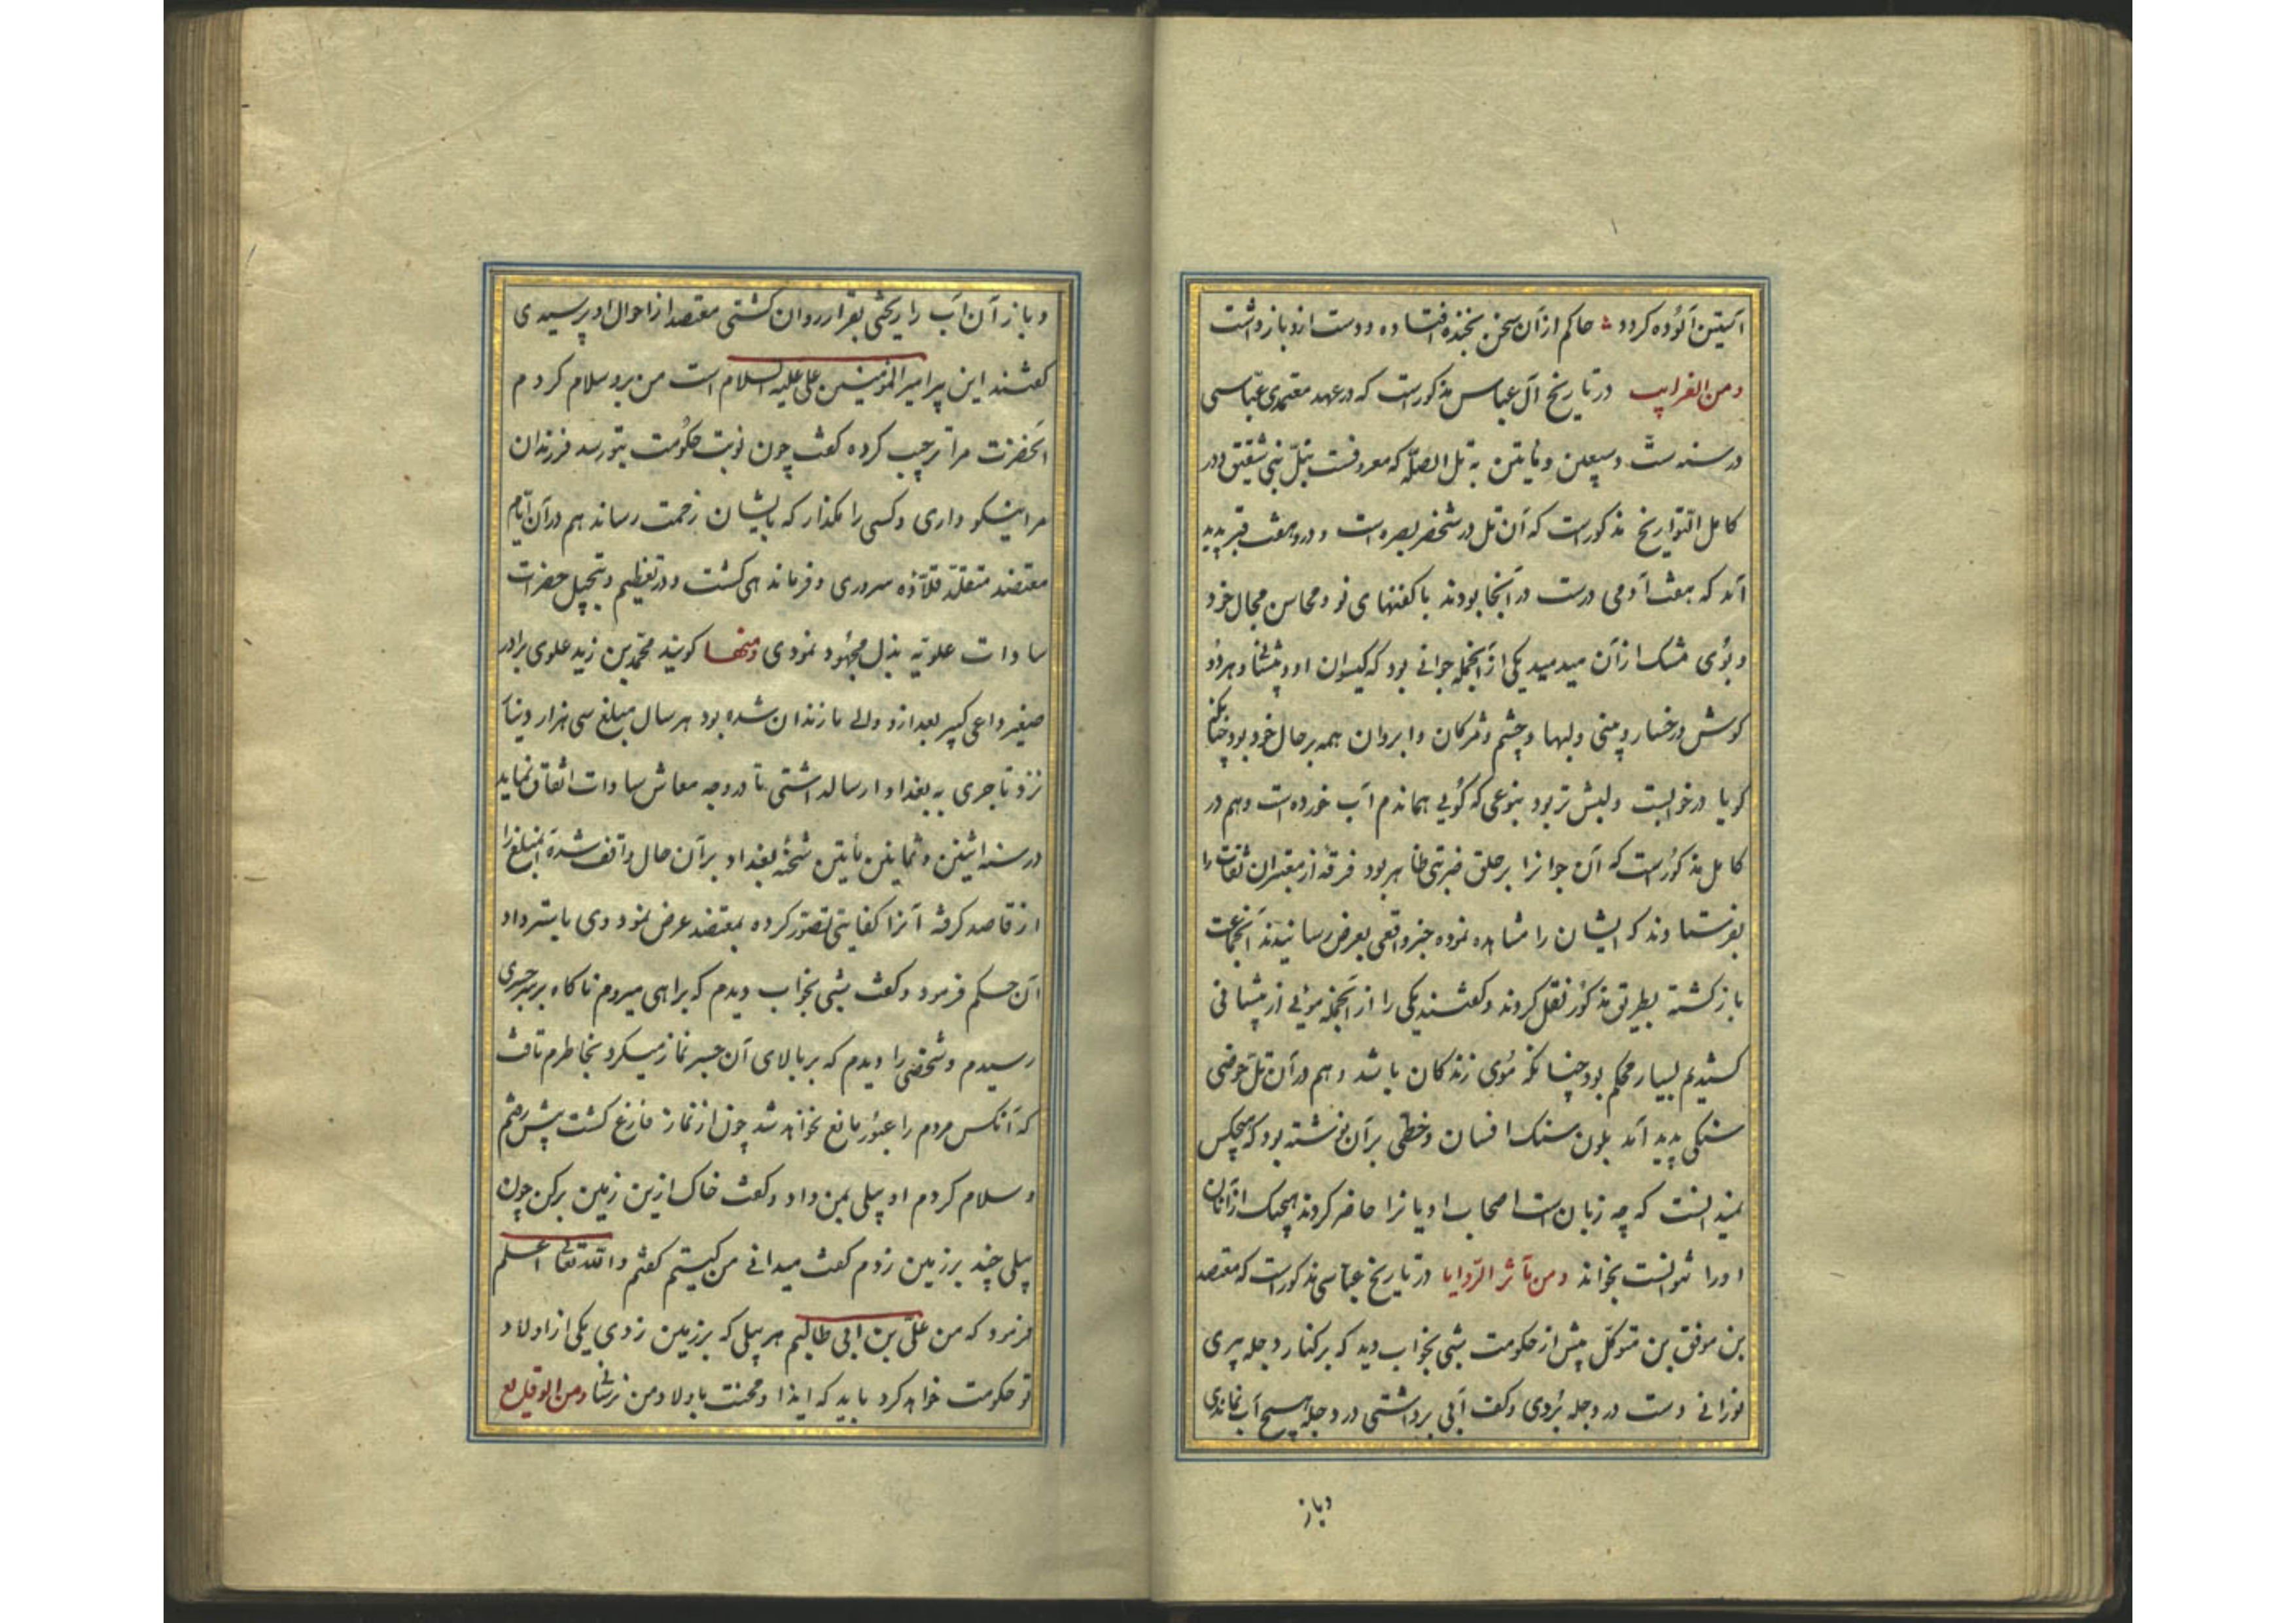 آستین آلوده کردد حاکم از آن سخن بخنده افتاده و دست ازو باز داشت
ومن الغرایب در تاریخ آل عباس مذکورست که در عهد معتمدی عباسی
در سنه ست و سبعین و مأتین به تل الصله که معروفست بتل بنی شقیق و در
کامل التواریخ مذکورست که آن تل در بصره است و درو هفت قبر پدید
آمد که هفت آدمی درست در آنجا بودند با کفنهای نو و محاسن بحال خود
و بوی مشک از آن میدمید یکی از آنجمله جوانی بود که کیسوان او و هر دو
کوش و رخسار و بینی و لبها و چشم و مژکان و ابروان همه بر حال خود بود چنانکه
کویا در خوابست و لبش تر بود بنوعی که کویی هماندم آب خورده است و هم در
کامل مذکورست که آن جوانرا بر حلق ضربتی ظاهر بود فرقه از معتبران ثقات را
بفرستادند که ایشان را مشاهده نموده خبر واقعی بعرض رسانیدند آنجماعت
باز کشته بطریق مذکور نقل کردند و کفتند یکی را از آنجمله مویی از پیشانی
کشیدیم بسیار محکم بود چنانکه موی زندکان باشد و هم در آن تل حوضی
سنکی پدید آمد بلون سنک افسان و خطی بر آن نوشته بود که هیچکس
نمیدانست که چه زبان است اصحاب ادیانرا حاضر کردند هیچیک از آنان
اورا نتوانست بخواند ومن مآثر الرؤیا در تاریخ عباسی مذکور است که معتضد
بن موفق بن متوکل پیش از حکومت شبی بخواب دید که بر کنار دجله پیری
نورانی دست در دجله بردی و کف آبی برداشتی در دجله هیچ آب نماندی
وباز
وباز آن آب را ریختی بقرار روان کشتی معتضد از احوال او پرسیدی
کفتند این پیر امیر المؤمنین علی علیه السلام است من برو سلام کردم
آنحضرت مرا ترحیب کرده کفت چون نوبت حکومت بتو رسد فرزندان
مرا نیکو داری و کسی را مکذار که بایشان زحمت رساند هم در آن ایام
معتضد متقلد قلاده سروری و فرماندهی کشت و در تعظیم و تبجیل حضرت
سادات علویه بذل مجهود نمودی ومنها کویند محمد بن زید علوی برادر
صغیر داعی کبیر بعد ازو والی مازندران شده بود هر سال مبلغ سی هزار دینار
نزد تاجری به بغداد ارسال داشتی تا در وجه معاش سادات انفاق نماید
در سنه اثنین و ثمانین مأتین شحنه بغداد بر آن حال واقف شده آنمبلغ را
از قاصد کرفته آنرا کفایتی تصور کرده بمعتضد عرض نمود وی باسترداد
آن حکم فرمود و کفت شبی بخواب دیدم که براهی میروم ناکاه بر سر جسری
رسیدم و شخصی را دیدم که بر بالای آن جسر نماز میکرد بخاطرم تافت
که آنکس مردم را عبور مانع نخواهد شد چون از نماز فارغ کشت پیش رفتم
و سلام کردم او بیلی بمن داد و کفت خاک ازین زمین برکن چون
بیلی چند بر زمین زدم کفت میدانی من کیستم کفتم والله تعالی اعلم
فرمود که من علی بن ابی طالبم هر بیلی که بر زمین زدی یکی از اولاد
تو حکومت خواهد کرد باید که ایذا و محنت باولاد من نرسانند ومن الوقایع